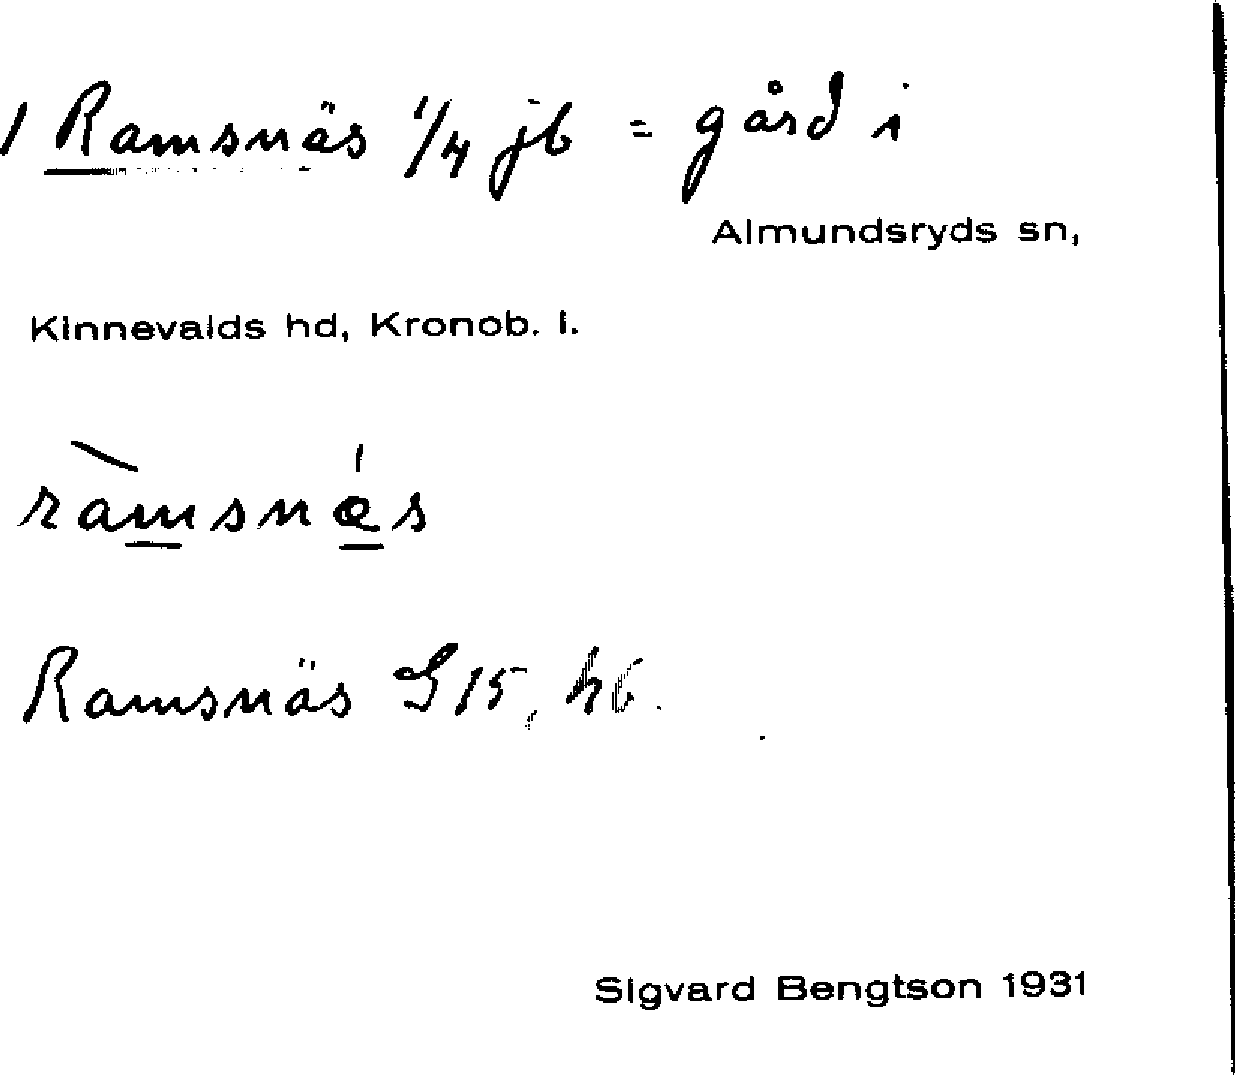 1 Ramsnäs 1/4 jb = gård i
Almundsryds sn,
Kinnevalds hd, Kronob. l.
ràmsnǽs
Ramsnäs G 15, h6.
Sigvard Bengtson 1931